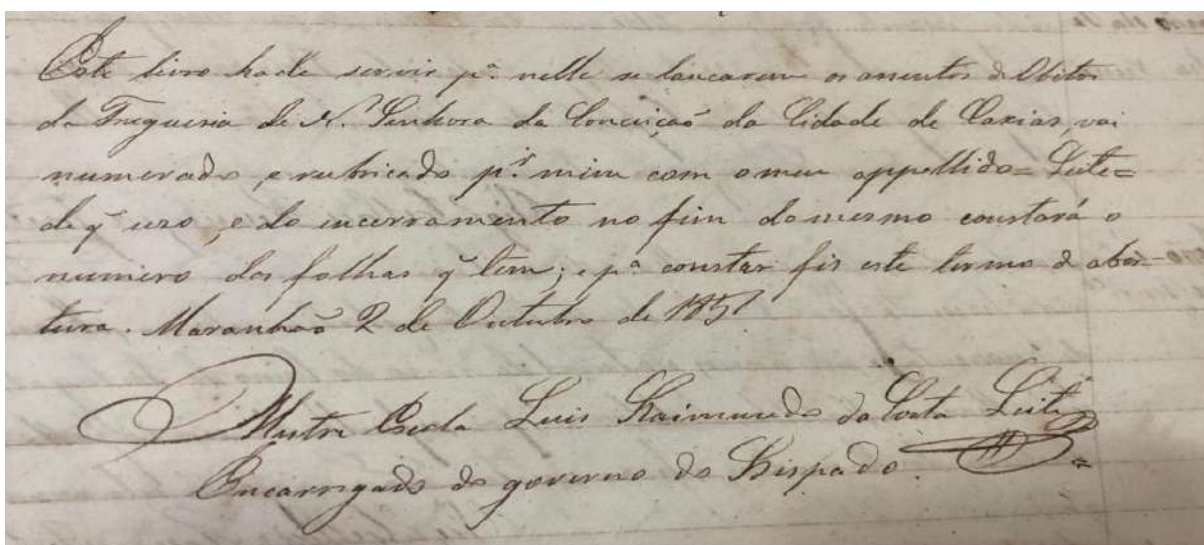 Este livro hade servir pª. nelle se lancarem os asentos de Obitos
da Freguesia de N. Senhora da Conceiçaõ da Cidade de Caxias, vai
numerado, e rubricado pr. mim com o meu appellido = Leite =
de q̃ uso, e do incerramento no fim do mesmo constará o
numero das folhas q̃ tem; e pª constar fis este termo de aber-
tura. Maranhaõ 2 de Outubro de 1851
Mestre Escola Luis Raimundo da Costa Leite
Encarregado do governo do Bispado.